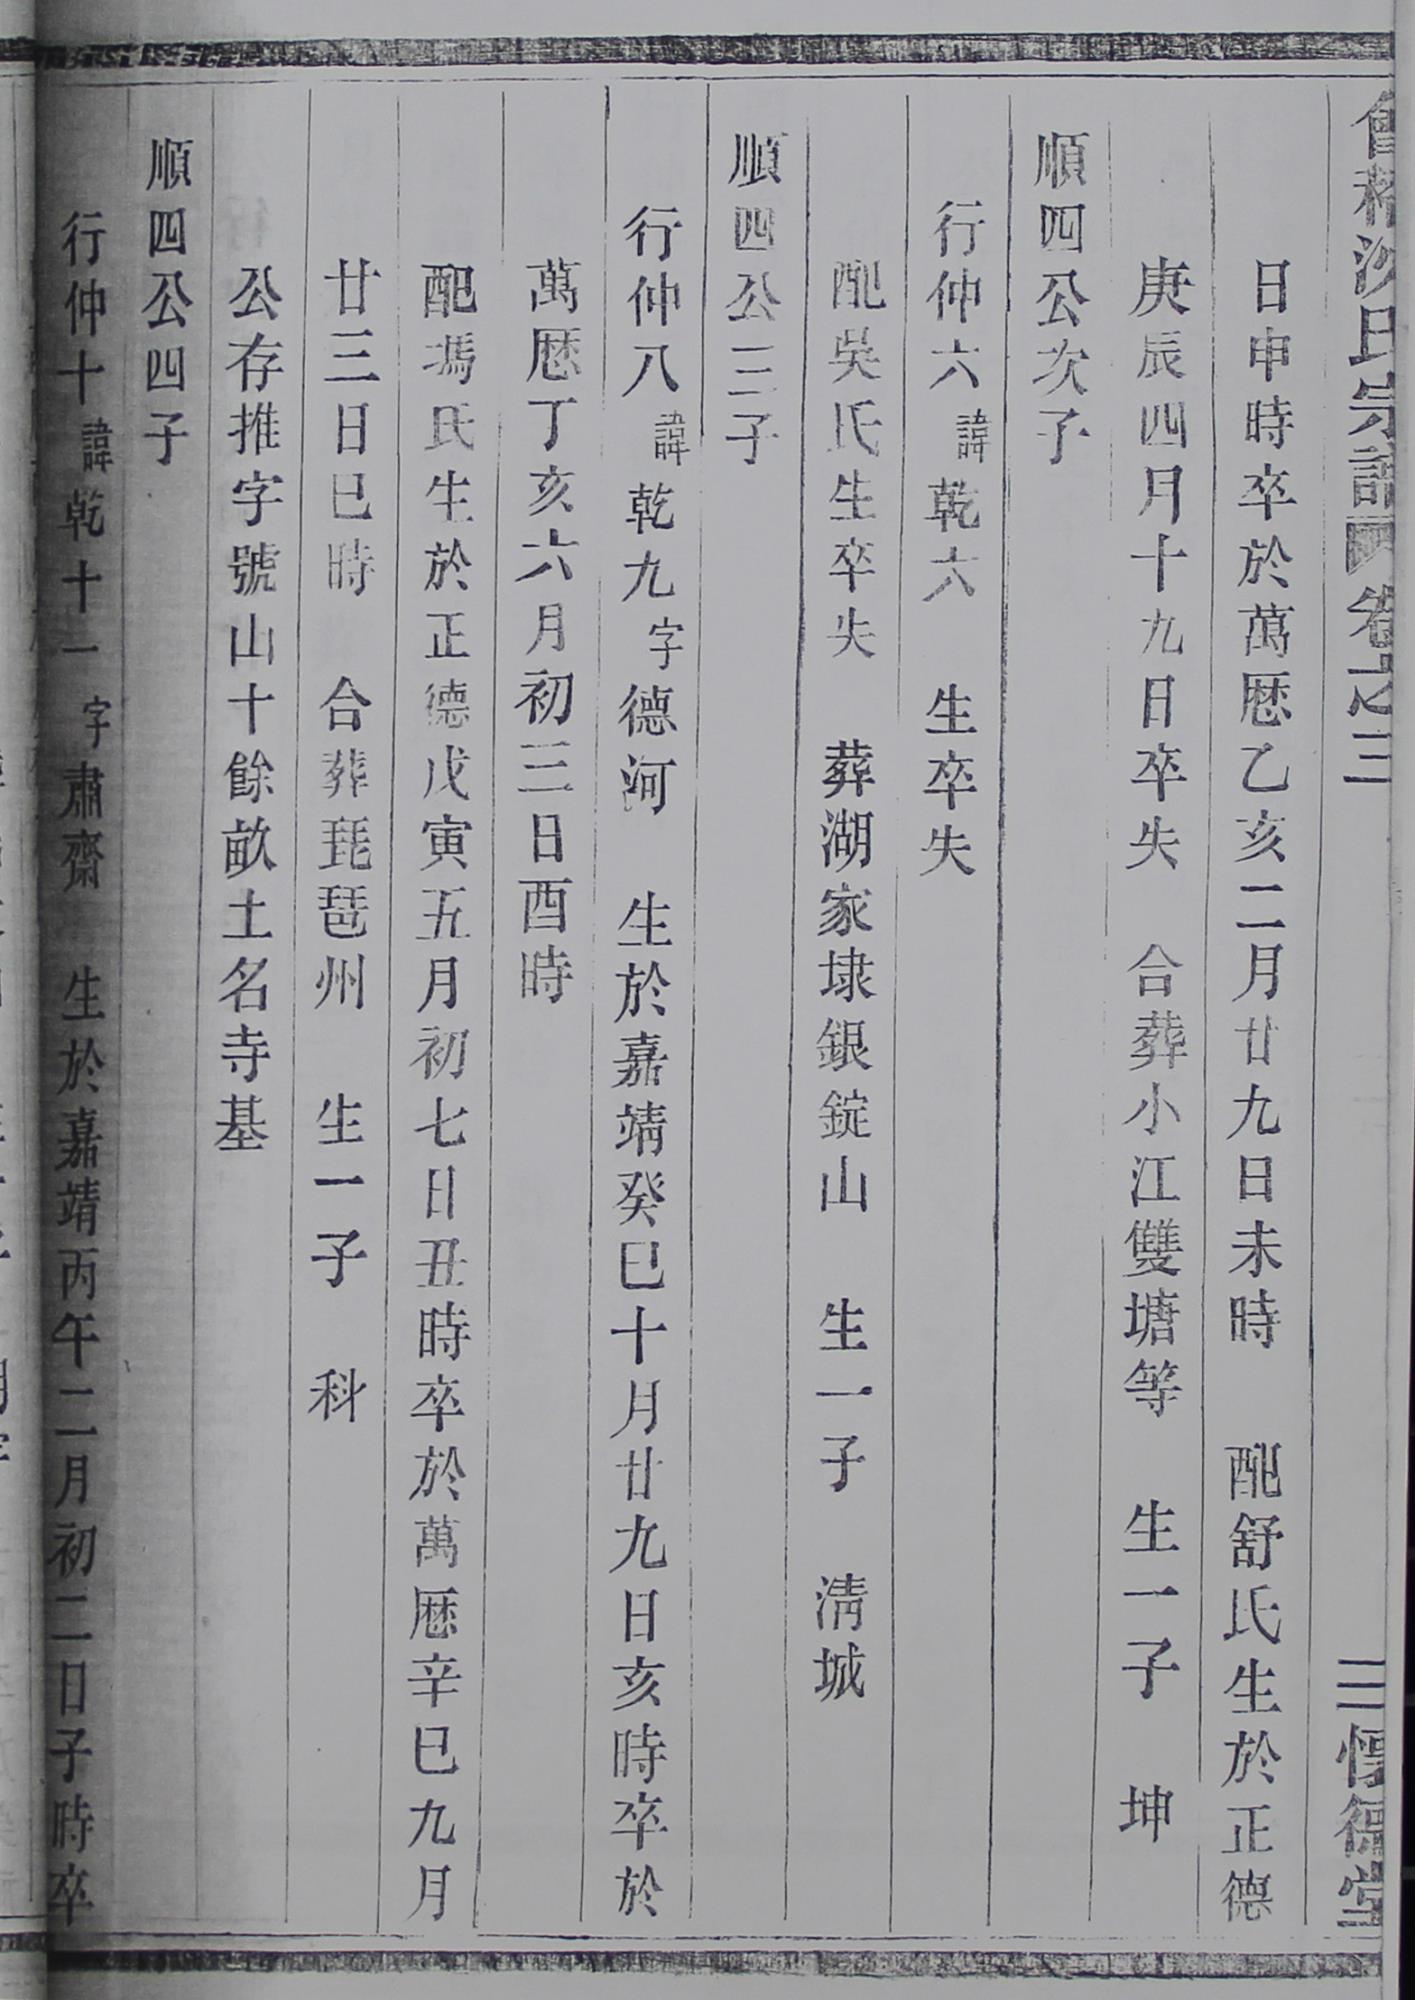 會稽沙氏宗譜 卷之三 三 懷德堂
日申時卒於萬厯乙亥二月廿九日未時 配舒氏生於正德
庚辰四月十九日卒失 合葬小江雙塘等 生一子 坤
順四公次子
行仲六諱乾六 生卒失
配吳氏生卒失 葬湖家埭銀錠山 生一子 淸城
順四公三子
行仲八諱乾九字德河 生於嘉靖癸巳十月廿九日亥時卒於
萬厯丁亥六月初三日酉時
配馮氏生於正德戊寅五月初七日丑時卒於萬厯辛巳九月
廿三日巳時 合葬琵琶州 生一子 科
公存推字號山十餘畝土名寺基
順四公四子
行仲十諱乾十一字肅齋 生於嘉靖丙午二月初二日子時卒